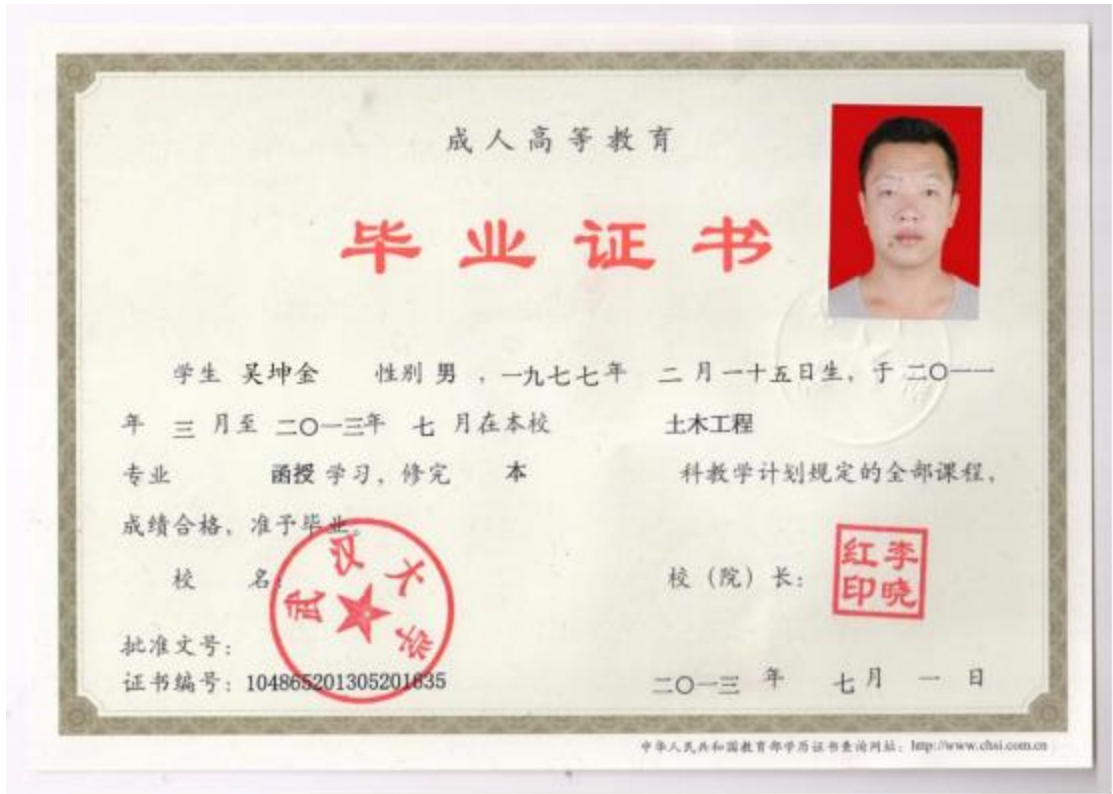 成人高等教育
毕业证书
学生 吴坤金 性别 男 ，一九七七年 二月一十五日生，于二〇一一
年 三 月至 二〇一三年 七 月在本校 土木工程
专业 函授 学习，修完 本 科教学计划规定的全部课程，
成绩合格，准予毕业。
校 名： 校（院）长：
武汉大学
李晓红印
批准文号：
证书编号：104865201305201635
二〇一三 年 七月 一 日
中华人民共和国教育部学历证书查询网址：http://www.chsi.com.cn